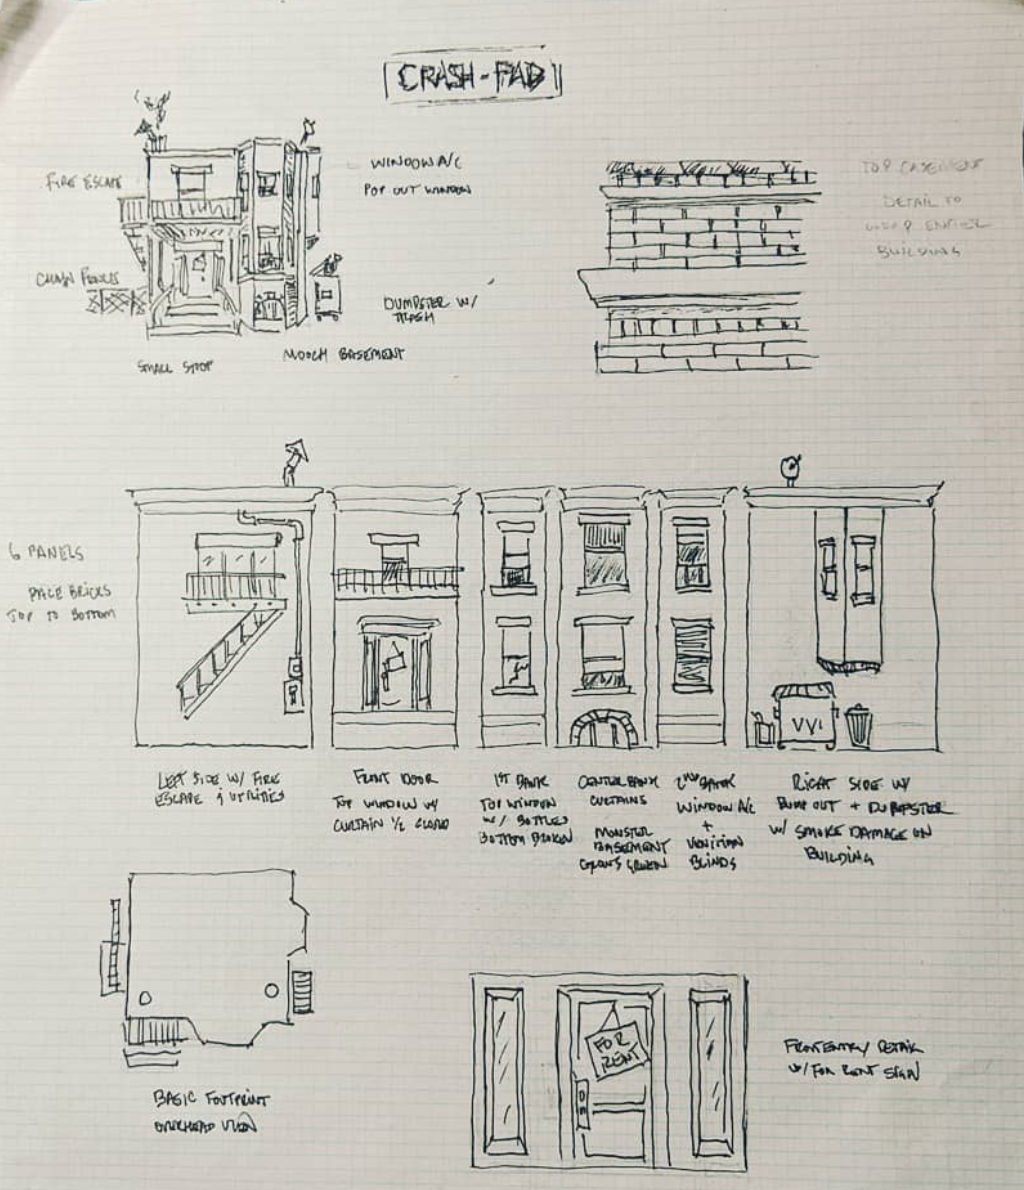 CRASH-PAD
WINDOW A/C
POP OUT WINDOW
FIRE ESCAPE
CHAIN FENCES
DUMPSTER W/
TRASH
SMALL STOOP
MOOCH BASEMENT
TOP CASEMENT
DETAIL TO
ENTIER
BUILDING
6 PANELS
PALE BRICKS
TOP TO BOTTOM
LEFT SIDE W/ FIRE
ESCAPE & UTILITIES
FRONT DOOR
TOP WINDOW W/
CURTAIN 1/2 CLOSED
1ST BANK
TOP WINDOW
W/ BOTTLES
BOTTOM BROKEN
CENTER BANK
CURTAINS
MONSTER
BASEMENT
GLOWS GREEN
2ND BANK
WINDOW A/C
+
VENITIAN
BLINDS
RIGHT SIDE W/
BUMP OUT + DUMPSTER
W/ SMOKE DAMAGE ON
BUILDING
BASIC FOOTPRINT
OVERHEAD VIEW
FOR
RENT
FRONT ENTRY DETAIL
W/ FOR RENT SIGN